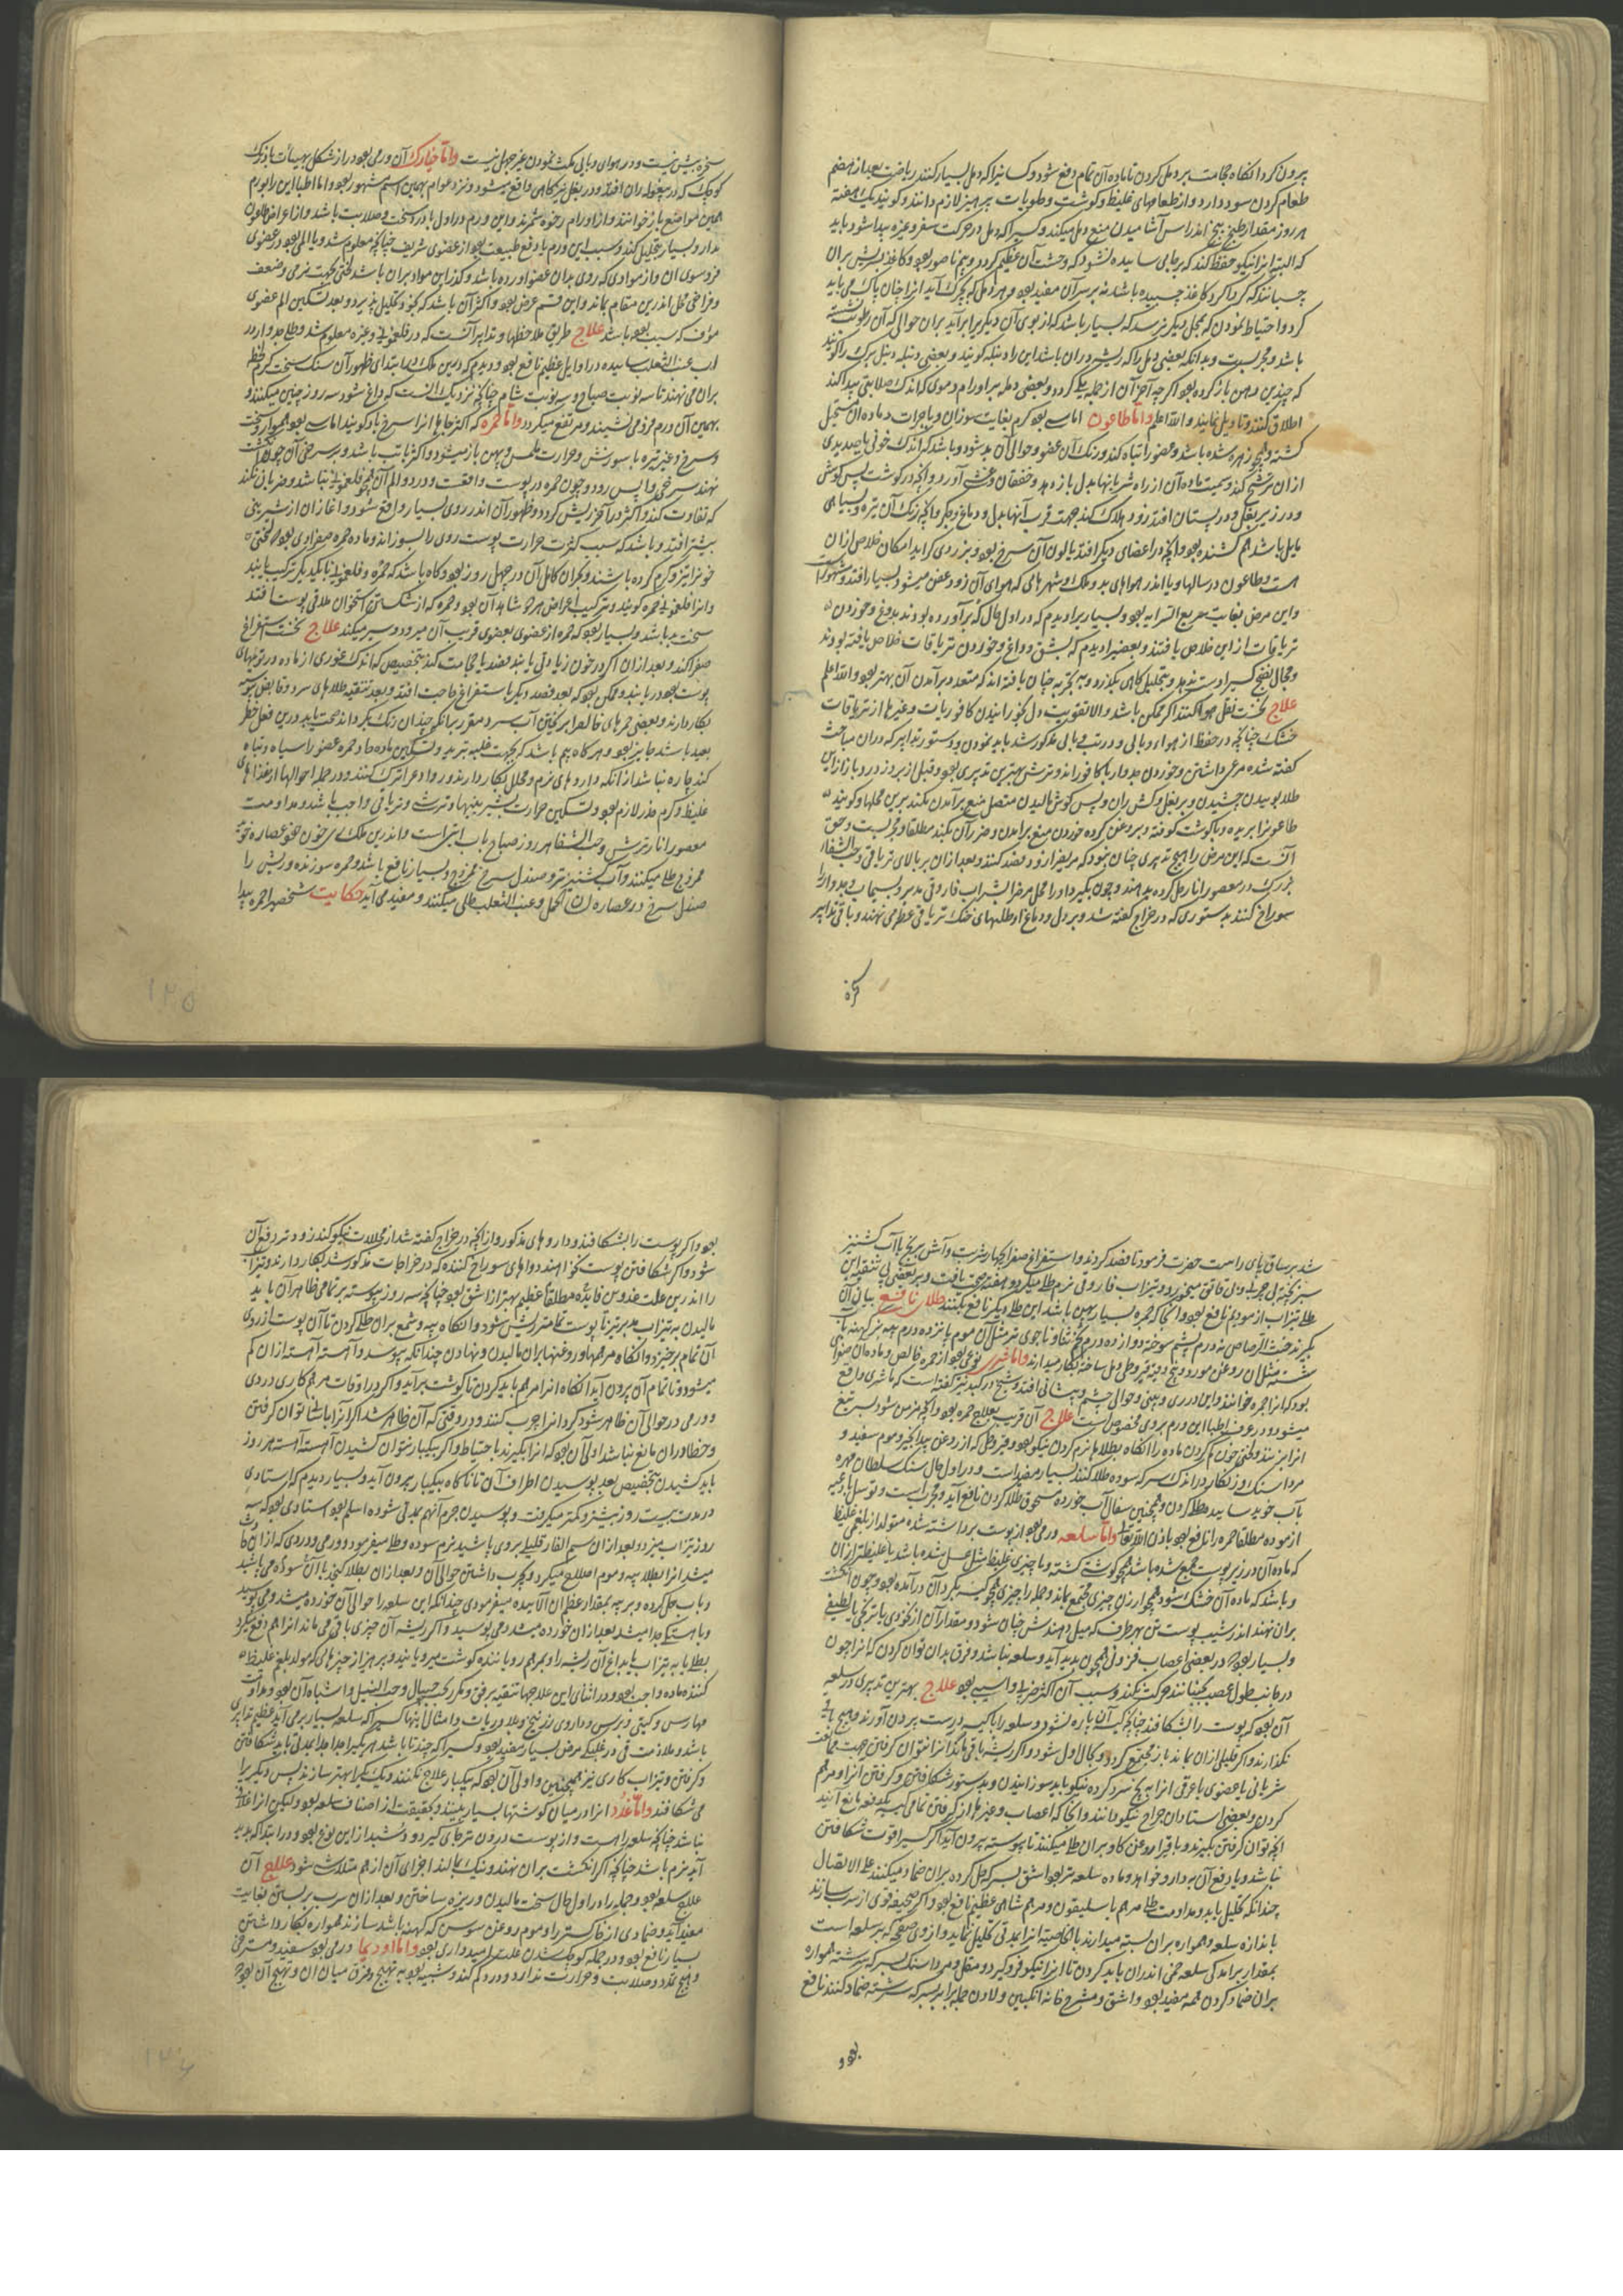 بیرون کرد انکاه حجامت بر دمل کردن تا ماده آن تمام دفع شود و کسانیرا که دمل بسیار کنند ریاضت بعد از هضم
طعام کردن سود دارد و از طعامهای غلیظ و کوشت و حلویات پرهیز لازم دانند و کویند یک هفته
هر روز مقدار طبیخ اندر اس آشامیدن منع دمل میکند و کسیرا که دمل در حرکت سفر و غیره پیدا شود باید
که البته انرا نیکو حفظ کند که بر جایی ساییده نشود که وحشت آن عظیم کردد و بیم ناصور بود و کاغذ بر ان
چسبانند که کرداکرد کاغذ چسپیده باشد نه بر سر آن مفید بود و هر دمل که بچرک آید انرا چنان پاک می باید
کرد و احتیاط نمودن که بمحل دیکر نرسد که بسیار باشد که از بوی آن دیکر برابر آید بران حوالی که آن رطوبت
باشد و مجربست و بدانکه بعضی دمل را که ریشه دران باشد این را دنبله کویند و بعضی دنبله دمل بزرک را کویند
که چندین دهن باز کرده بود اکرچه آخر آن از جمله یکی کردد و بعضی دمله بر اورام دموی که اندک صلابتی پیدا کند
اطلاق کنند و تاویل نمایند والله اعلم واما طاعون اماسی بود کرم بغایت سوزان و با جراحت و ماده ان مستحیل
کشته و همچو زهر شده باشد و عضو را تباه کند و رنک آن عضو و حوالی آن بد شود و باشد که اندک خونی یا صدیدی
ازان ترشح کند و سمیت ماده آن از راه شریانها بدل باز دهد و خفقان و غشی آورد و آنچه در کوشت پس کوش
و در زیر بغل و در پستان افتد زود هلاک کند بجهت قرب آنها بدل و دماغ و جکر و آنچه رنک آن تیره و بسیاهی
مایل باشد هم کشنده بود و آنچه در اعضای دیکر افتد یا لون آن سرخ بود و بزردی کراید امکان خلاص ازان
هست و طاعون در سالها و با اندر هواهای بد و ملک و شهرهایی که هوای آن زود عفن میشود بسیار افتد
واین مرض بغایت سریع السرایه بود و بسیار را دیدم که در اول حال که برآورده بودند بدوغ و خوردن
تریاقات ازاین خلاص یافتند و بعضی را دیدم که بشق و داغ و خوردن تریاقات خلاص یافته بودند
ومجال نضج کسی را دست ندهد و بتحلیل کاهی بکذرد و بتجربه چنان یافته اند که متعدد برآمدن آن بهتر بود والله اعلم
علاج نخست نقل هوا کنند اکر ممکن باشد والا تقویت دل بخورانیدن کافوریات و غیرها از تریاقات
خنک چنانچه در حفظ از هواء وبایی و در تب وبایی مذکور شد باید نمودن و دستور تدابیر که دران مباحث
کفته شده مرعی داشتن و خوردن جدوار با کافور اندر ترشی بهترین تدبیری بود و قبل از بروز درد باز ازاین
طلا بوییدن چشیدن و بر بغل و کش ران و پس کوش مالیدن متصل منع برآمدن نکند برین محلها و کویند
طاعونرا بریده و با کوشت کوفته و بروغن کرده خوردن منع برآمدن و ضرر آن بکند مطلقا و مجربست و حق
آنست که این مرض را هیچ تدبیری چنان نبود که مریض را زود فصد کنند و بعد ازان بر بالای تریاقی و حب الشفاء
بزرک در معصور انار حل کرده بدهند و چون بکیرد او را محل مرض را بشراب فاروقی مدبر و بسیماب و جدوار را
سوراخ کنند بدستوری که در خراج کفته شد و بر دل و دماغ او طلاهای خنک تریاقی عطر می نهند و باقی تدابیر
کرة
سنجره پیش نیست و در هوای وبایی مکث نمودن غیر جهل نیست واما خیارک آن ورمی بود دراز شکل بهیأت بادرنک
کوچک که در بیغوله ران افتد و در بغل نیز کاهی واقع میشود و نزد عوام بهمین اسم مشهور بود واما اطبا این را بورم
همین مواضع باز خوانند و از اورام رخوه شمرند واین ورم در اول بادرد سخت و صلابت باشد و از اعراض طاعون
ندارد و بسیار تحلیل کند و سبب این ورم یا دفع طبیعت بود از عضوی شریف چنانچه معلوم شد و یا المی بود در عضوی
فروسوی ان و از موادی که روی بدان عضو اورده باشد و کذر این مواد بران باشد لختی بجهت نرمی و ضعف
و فراخی محل اندرین مقام بماند واین قسم عرض بود و اکثر آن باشد که بخود تحلیل پذیرد و بعد تسکین الم عضوی
مؤف که سبب بود باشد علاج طریق ملاحظها و تدابیر آنست که در فلغمونی و غیره معلوم شد و طلاء جدوار در
اب عنب الثعلب ساییده در اوایل عظیم نافع بود و دیدم که در بین ملک در ابتدای ظهور آن سنک سخت کرم
بران می نهند تا سه نوبت صباح و سه نوبت شام چنانچه نزدیک آنست که داغ شود سه روز چنین میکنند و
بهمین آن ورم فرو می نشیند و مرتفع میکردد واما حمره که اکثر جاها انرا سرخ باد کویند اماسی بود هموار سخت
و سرخ و غیر تیره با سوزش و حرارت ملمس و پهن باز میشود و اکثر با تب باشد و بر سرخی آن چون انکشت
نهند سرخی واپس رود و چون حمره در پوست واقعست و درد و الم آن همچو فلغمونی نباشد و ضربانی نکند
که تفاوت کند و اکثر در آخر ریش کردد و ظهور آن اندر روی بسیار واقع شود و آغاز ان از سر بینی
بیشتر افتد و باشد که سبب کثرت حرارت پوست روی را بسوزاند و ماده حمره صفراوی بود که لختی
خونرا تیز و کرم کرده باشند و بحران کامل آن در چهل روز بود و کاه باشد که حمره و فلغمونی با یکدیکر ترکیب یابند
وانرا فلغمونی حمره کویند و ترکیب اعراض هر دو شاهد آن بود و حمره که از شکستن استخوان ملاقی پوست افتد
سخت بد باشد و بسیار بود که حمره از عضوی بعضوی قریب آن میرود و سیر میکند علاج نخست استفراغ
صفرا کند و بعد ازان اکر در خون زیادتی یابند فصد یا حجامت کند بتخصیص که اندک غوری از ماده در توهای
پوست بود دریابند و ممکن بود که بعد فصد دیکر باستفراغ حاجت افتد و بعد تنقیه طلاهای سرد و قابض
بکار دارند و بعضی حمرهای خالص را بریختن آب سرد مقرر سالم چندان رنک بکرداند صحت یابد و درین فعل خطر
بعید باشد جایز بود و هر کاه بیم باشد که بجهت غلبه تبرید و تسکین ماده حاد حمره عضو را سیاه و تباه
کند چاره نباشد از انکه داروهای نرم و محلل بکار دارند و روادع را ترک کنند و در جمله احوالها از غذاهای
غلیظ و کرم حذر لازم بود و تسکین حرارت بشربتهاء ترشی و تریاقی واجب باشد و مداومت
معصور انار ترش و حب الشفا هر روز صباح باب اینرا ست و اندرین ملک بر سرخون
ممزوج طلا میکنند و آب کشنیز تر و صندل سرخ ممزوج بسیار نافع باشد و حمره سوزنده و ریش را
صندل سرخ در عصاره لسان الحمل و عنب الثعلب طلی میکنند و مفید می آید حکایت شخصیرا حمره پیدا
شد بر ساق پای راست حضرت فرمود تا فصد کردند و استفراغ صفرا بچهار شربت و آش برنج با آب کشنیز
سبز پخته بی چربی و ول قاتق میخورد و بتیزاب فاروقی نرم طلا میکرد دو هفته صحت یافت و بر بعضی بی تنقیه این
طلا تیزاب ازمودیم نافع بود و آنجا که حمره بسیار پهن باشد این طلا دیکر نافع یکنند طلای نافع بیانی آن
بکیرند خبث الرصاص نه درم پشم سوخته دوازده درم نخاع کاو جوی تر مثل آن موم پانزده درم پیه بز کهنه
شسته مثل ان روغن مورد پنج وقیه قیروطی و لعل ساخته بکار میدارند واماشری نوعی بود از حمره خالص و ماده ان صفرا
بود که انرا جمره خوانند واین در روی و بینی و حوالی چشم و پیشانی افتد و شیخ در کبد نیز کفته است که ماشری واقع
میشود و در عرف اطبا این ورم بروی مخصوص است علاج آن قریب بعلاج حمره بود و آنچه مزمن شود بسر تیغ
انرا بزنند و لختی خون کم کردن ماده را انکاه بطلاها نرم کردن نیکو بود و قیروطی که از روغن بید انجیر و موم سفید و
مرداسنک و زنکار در اندک سرکه سوده طلا کنند بسیار مفید است و در اول حال سنک سلطان مهره
بآب خوید ساییده طلا کردن و همچنین سفال آب خورده مسحوق طلا کردن نافع آید و مجربست و توسل بادعیه
ازموده مطلقا حمره را نافع بود باذن الله تعالی واما سلعه ورمی بود از پوست برداشته شده متولد از بلغمی غلیظ
که ماده آن در زیر پوست جمع شده باشد همچو کوشتی کشته و یا چیزی غلیظ مثل عسل شده باشد یا غلیظتر ازان
و باشد که ماده آن خشک شود همچو ارزن چیزی مجتمع بماند و جمله را چیزی همچو کیسه بکرد آن درآمده بود و چون انکشت
بران نهند اندر شیب پوست تن بهر طرف که میل دهندش چنان شود و مقدار آن از نخودی تا ترنجی یا بطیخ
و بسیار بود که در بعضی اعصاب فزونی همچون پدید آید و سلعه نباشد و فرق بدان توان کردن که انرا چون
در جانب طول عصب بجنبانند حرکت نکند و سبب آن اکثر ضربه و آسیبی بود علاج بهترین تدبیری در سلعه
آن بود که پوست را بشکافند چنانچه کیسه آن پاره نشود و سلعه را با کیسه درست بیرون آورند و هیچ باقی
نکذارند و اکر قلیلی ازان بماند باز مجتمع کردد و بحال اول شود و اکر ریشه باقی ماند که انرا نتوان کرفتن بجهت ممانعت
شریانی یا عضوی یا عرقی انرا به یخ سرد کرده نیکو باید سوزانیدن و بدستور شکافتن و کرفتن انرا و مرهم
کردن و بعضی استادان جراح نیکو دانند و انجا که اعصاب و غیرها از کرفتن تمامی کیسه یکدفعه مانع آیند
انچه توان کرفتن بکیرند و باقی را روغن کاو بران طلا میکنند تا پوسته بیرون آید اکر کسیرا قوت شکافتن
نباشد و یا رفع آن به دارو خواهد و ماده سلعه تر بود اشق بسرکه حل کرده بران ضماد میکنند علی الاتصال
چندانکه تحلیل یابد و مداومت طلا مرهم باسلیقون و مرهم شاهی عظیم نافع بود و اکر صحیفه قوی از سرب سازند
باندازه سلعه و همواره بران بسته میدارند بالخاصیة انرا بمدتی تحلیل نماید و از روی صفحه که بر سلعه است
بمقدار برآمدکی سلعه خمی اندران باید کردن تا انرا نیکو فرو کیرد و مقل و مرداسنک بسرکه سرشته همواره
بران ضماد کردن همه مفید بود و اشق و مشرح خانه انکبین و لادن جمله برابر بسرکه سرشته ضماد کنند نافع
بود و
بود و اکر پوست را بشکافند و داروهای مذکور و از آنچه در خراج کفته شد از محللات نیکو کند زودتر رفع آن
شود و اکر شکافتن پوست نخواهند دواهای سوراخ کننده که در خراجات مذکور شد بکار دارند و تیزاب
را اندرین علت عدوس فایده مطلقا عظیم بهتر از اشق بود چنانچه سه روز پیوسته بر تمامی ظاهر آن باید
مالیدن به تیزاب مدبر تیز تا پوست تمامتر ریش شود و انکاه پیه و شمع بران طلا کردن تا آن پوست از روی
آن تمام برخیزد و انکاه مرهمها و روغنها بران مالیدن و نهادن چندانکه بپوسد و آهسته آهسته ازان کم
میشود و تا تمام آن بیرون آید انکاه انرا مرهم باید کردن تا کوشت برآید و اکر در اوقات مرهم کاری دردی
و ورمی در حوالی آن ظاهر شود کرد انرا چرب کنند و در وقتی که آن ظاهر شد اکر انرا بانشا توان کرفتن
و خطر و ان مانع نباشد اولی آن بود که انرا بکیرند باحتیاط و اکر بیکبار نتوان کشیدن آهسته آهسته هر روز
باید کشیدن بتخصیص بعد پوسیدن اطراف آن تا ناکاه بیکبار بیرون آید و بسیار دیدم که استادی
در مدت بیست روز بیشتر و کمتر میکرفت و پوسیدن جرم آنهم بمدتی شود و اسلم بود استادی بود که سه
روز تیزاب میزد و بعد ازان سم الفار قلیلی بروی پاشید نرم سوده و طلا میفرمود و ورمی و دردی که ازان
میشد انرا بطلا پیه و موم اصلاح میکرد و بچرب داشتن حوالی آن و بعد ازان بطلا کنجد با آن سوده می باشید
وبآب حل کرده و بر پیه بمقدار عظم ان آلاییده میفرمودی چندانکه این سلعه را حوالی آن خورده میشد و می پوسید
و باهستکی جدا میشد بعد ازان خورده میشد و می پوسید و اکر ریشه آن چیزی باقی می ماند انرا هم دفع میکرد
بطلا یا به تیزاب یا بداغ آن ریشه را و بمرهم رویاننده کوشت میرویانید و پرهیز از چیزهای که مولد بلغم غلیظ
کننده ماده واجب بود و در اثنای این علاجها تنقیه برفق و مکرر بحب سیال و حب النیل و اشباه آن بود و مداومت
مهارس و کبتی و برس و داروی زرنیخ و بلادریات و امثال اینها کسیرا که سلعه بسیار برمی آید عظیم تدابیری
باشد و ملازمت قی در غلبکی مرض بسیار مفید بود و کسیرا که چند تا باشد هر یکیرا جدا جدا بمدتی باید شکافتن
و کرفتن و تیزاب کاری نیز همچنین و اولی آن بود که بیکبار علاج نکنند و یک یک را بهتر سازند پس دیکریرا
می شکافند واما غدد انرا در میان کوشتها بسیار بینند و بحقیقت از اصناف سلعه بود ولیکن انرا غلاف
نباشد چنانچه سلعه راست و از پوست درون تر جای کیرد و دشبد از این نوع بود و در ابتدا که پدید
آید نرم باشد چنانچه اکر انکشت بران نهند و نیک بمالند اجزای آن از هم متلاشی شود علاج آن
علاج سلعه بود و جمله را در اول حال سخت مالیدن و ریزه ساختن و بعد ازان سرب بر بستن بغایت
مفید آید و ضمادی از خاکستر راز و موم روغن سوس که کهنه باشد سازند همواره بکار داشتن
بسیار نافع بود و در جمله کوچک شدن علت را امیدواری بود واما اوذیما ورمی بود سفید و مسترخی
و هیچ تمدد و صلابت و حرارت ندارد و درد کم کند و شبیه بود به تهیج و فرق میان ان و تهیج آن بود که